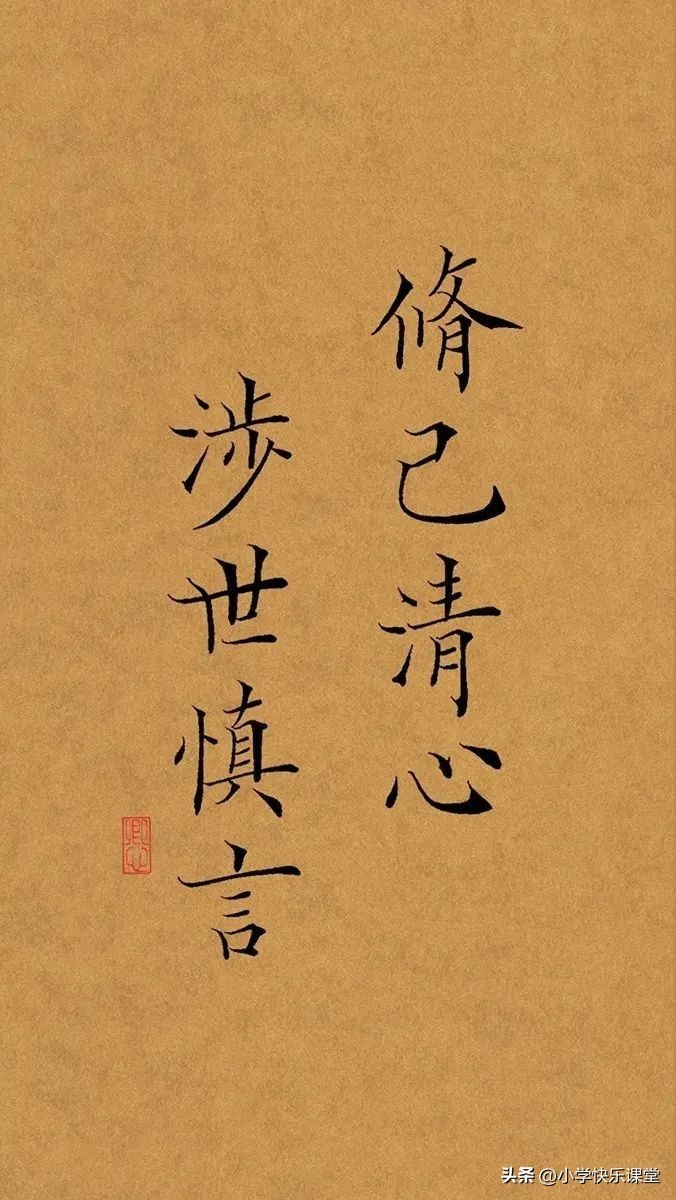 脩己清心
涉世慎言
头条 @小学快乐课堂